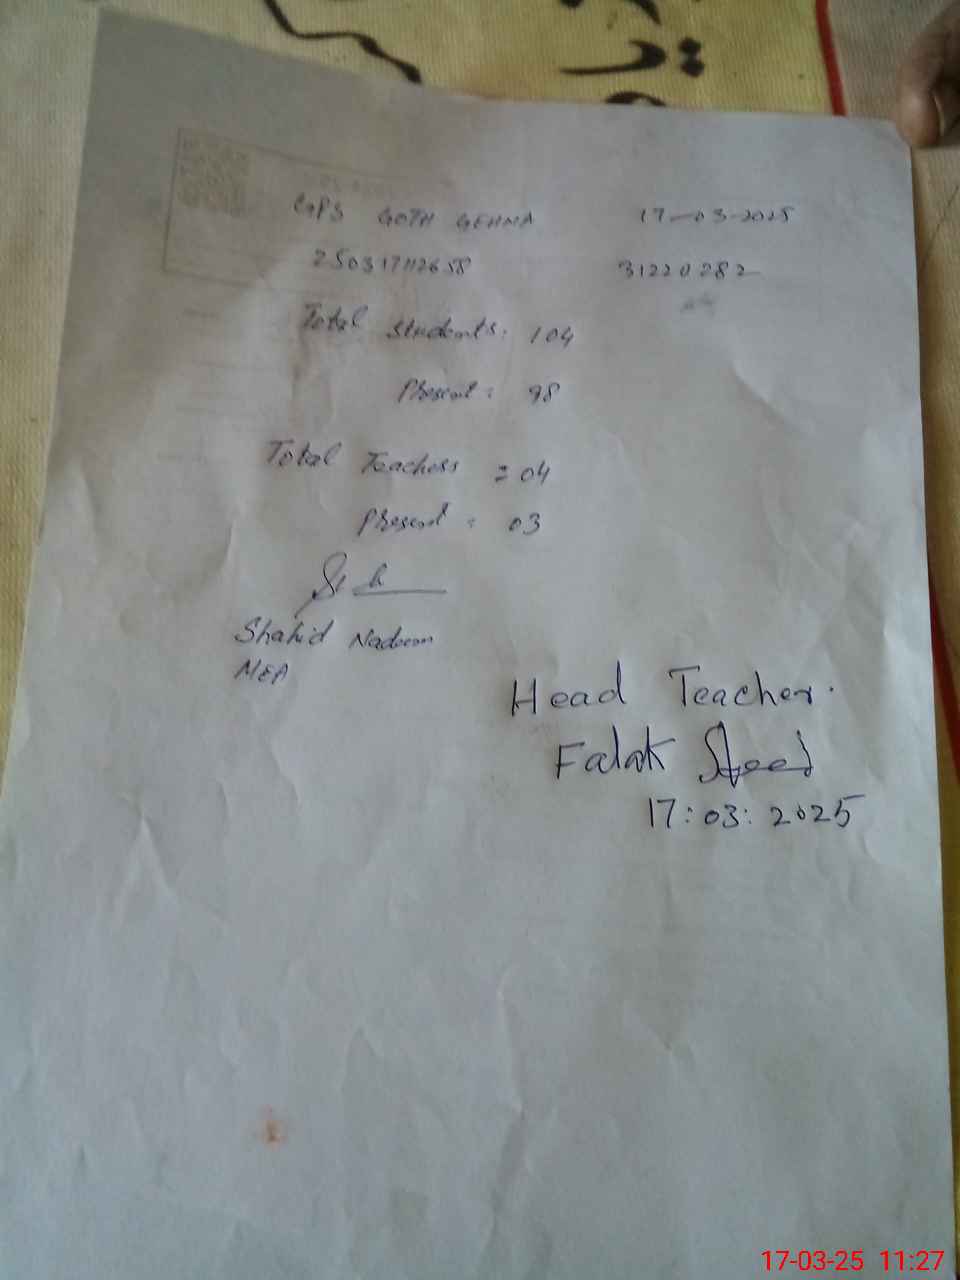 GPS GOTH GEHNA 17-03-2025
250317112658 31220282
Total Students: 104
Present: 98
Total Teachers = 04
Present: 03
Shahid Nadeem
MEA
Head Teacher.
Falak
17:03:2025
17-03-25 11:27